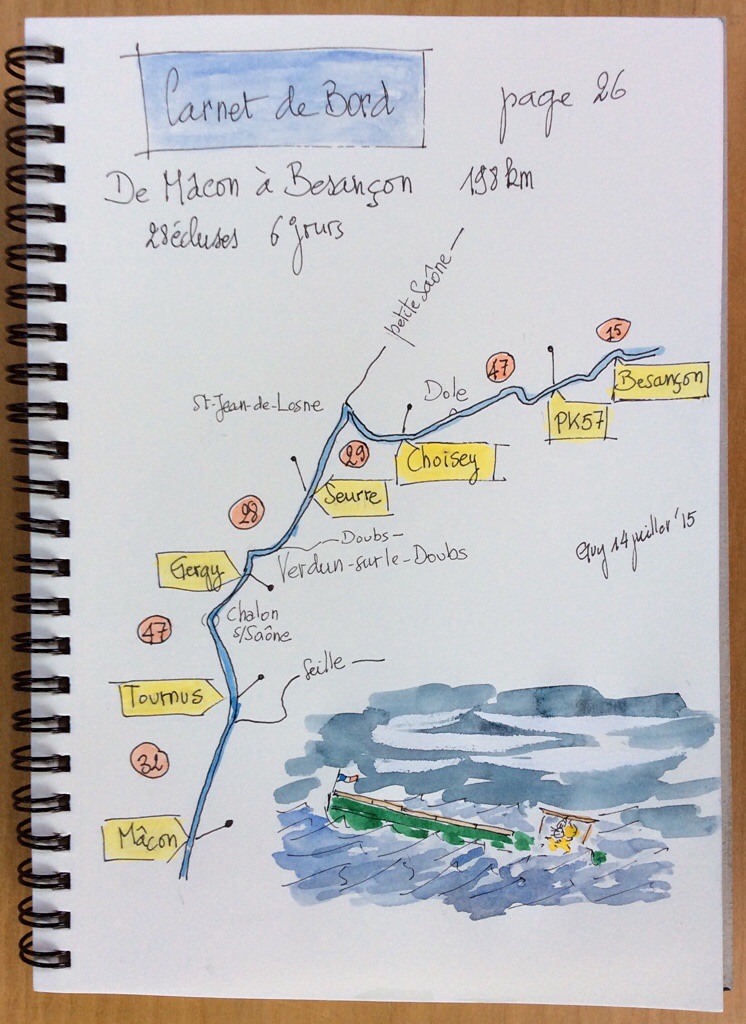 Carnet de Bord
page 26
De Mâcon à Besançon 198 km
28 écluses 6 jours
petite Saône
15
Besançon
47
PK57
Dole
St-Jean-de-Losne
29
Choisey
Seurre
28
Doubs
Verdun-sur-le-Doubs
Gergy
Guy 14 juillet '15
Chalon
s/Saône
47
Seille
Tournus
32
Mâcon